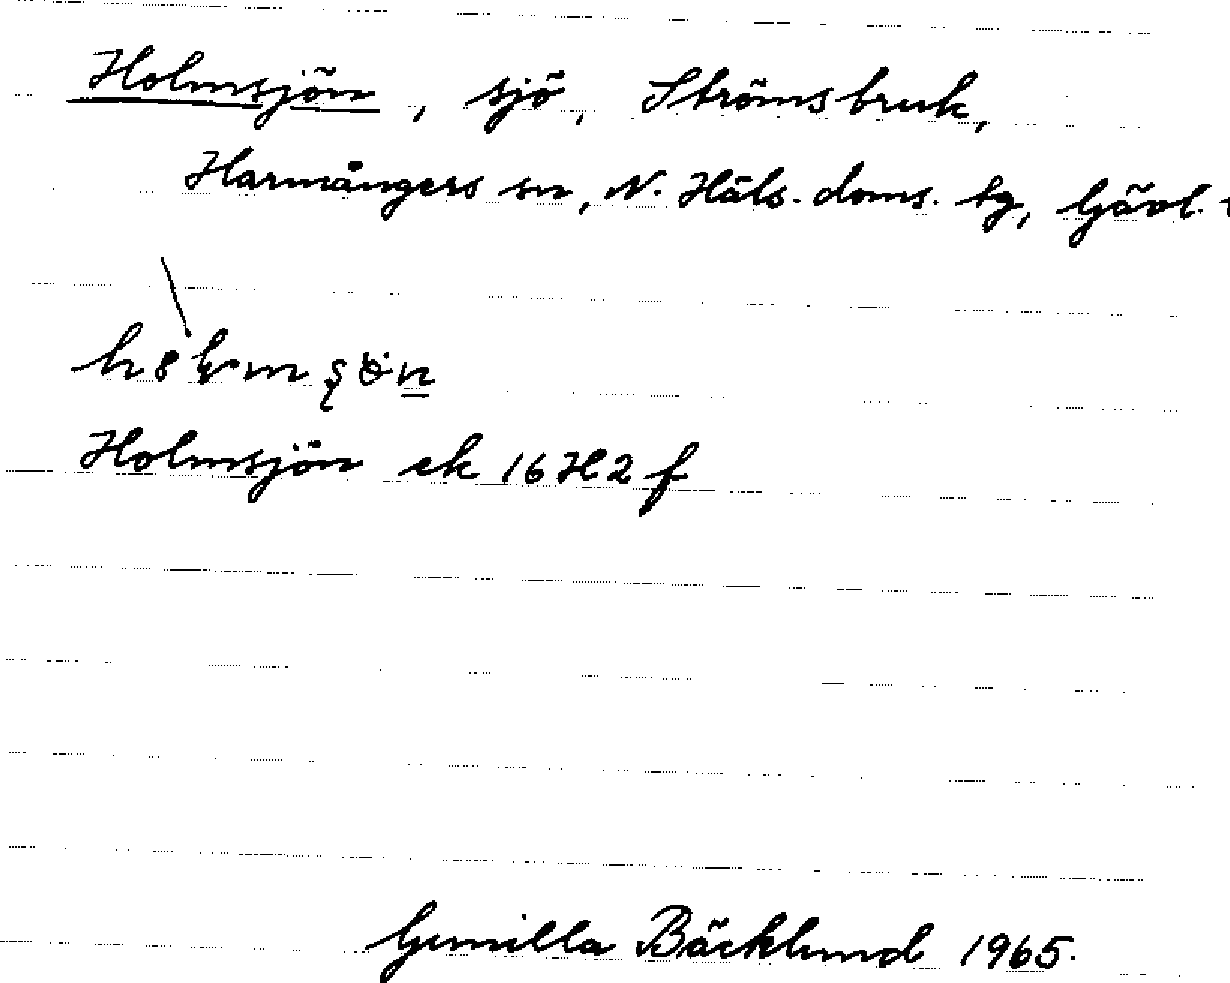 Holmsjön, sjö, Strömsbruk,
Harmångers sn, N. Häls. doms. tg, Gävl.
Holmsjön ek 16H2f
Gunilla Bäcklund 1965.